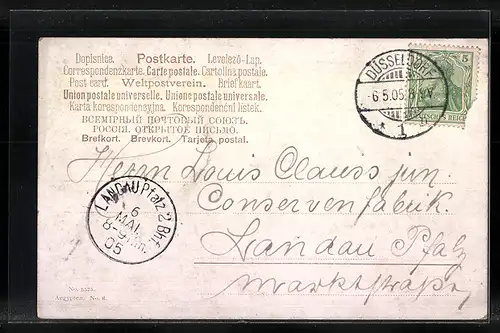 Dopisnice. Postkarte. Levelező-Lap.
Correspondenzkarte. Carte postale. Cartolina postale.
Post card. Weltpostverein. Brief kaart.
Union postale universelle. Unione postale universale.
Karta korespondencyjna. Korespondenční lístek.
ВСЕМІРНЫЙ ПОЧТОВЫЙ СОЮЗЪ.
РОССІЯ. ОТКРЫТОЕ ПИСЬМО.
Brefkort. Brevkort. Tarjeta postal.
DÜSSELDORF
6.5.05. 8-9V
* 1 *
5
DEUTSCHES REICH
Herrn Louis Clauss jun.
Conservenfabrik.
Landau Pfalz
Marktstraße
LANDAU Pfalz 2 Bhf.
6
MAI.
8-9 Nm.
05
No. 5323.
Aegypten, No. 6.